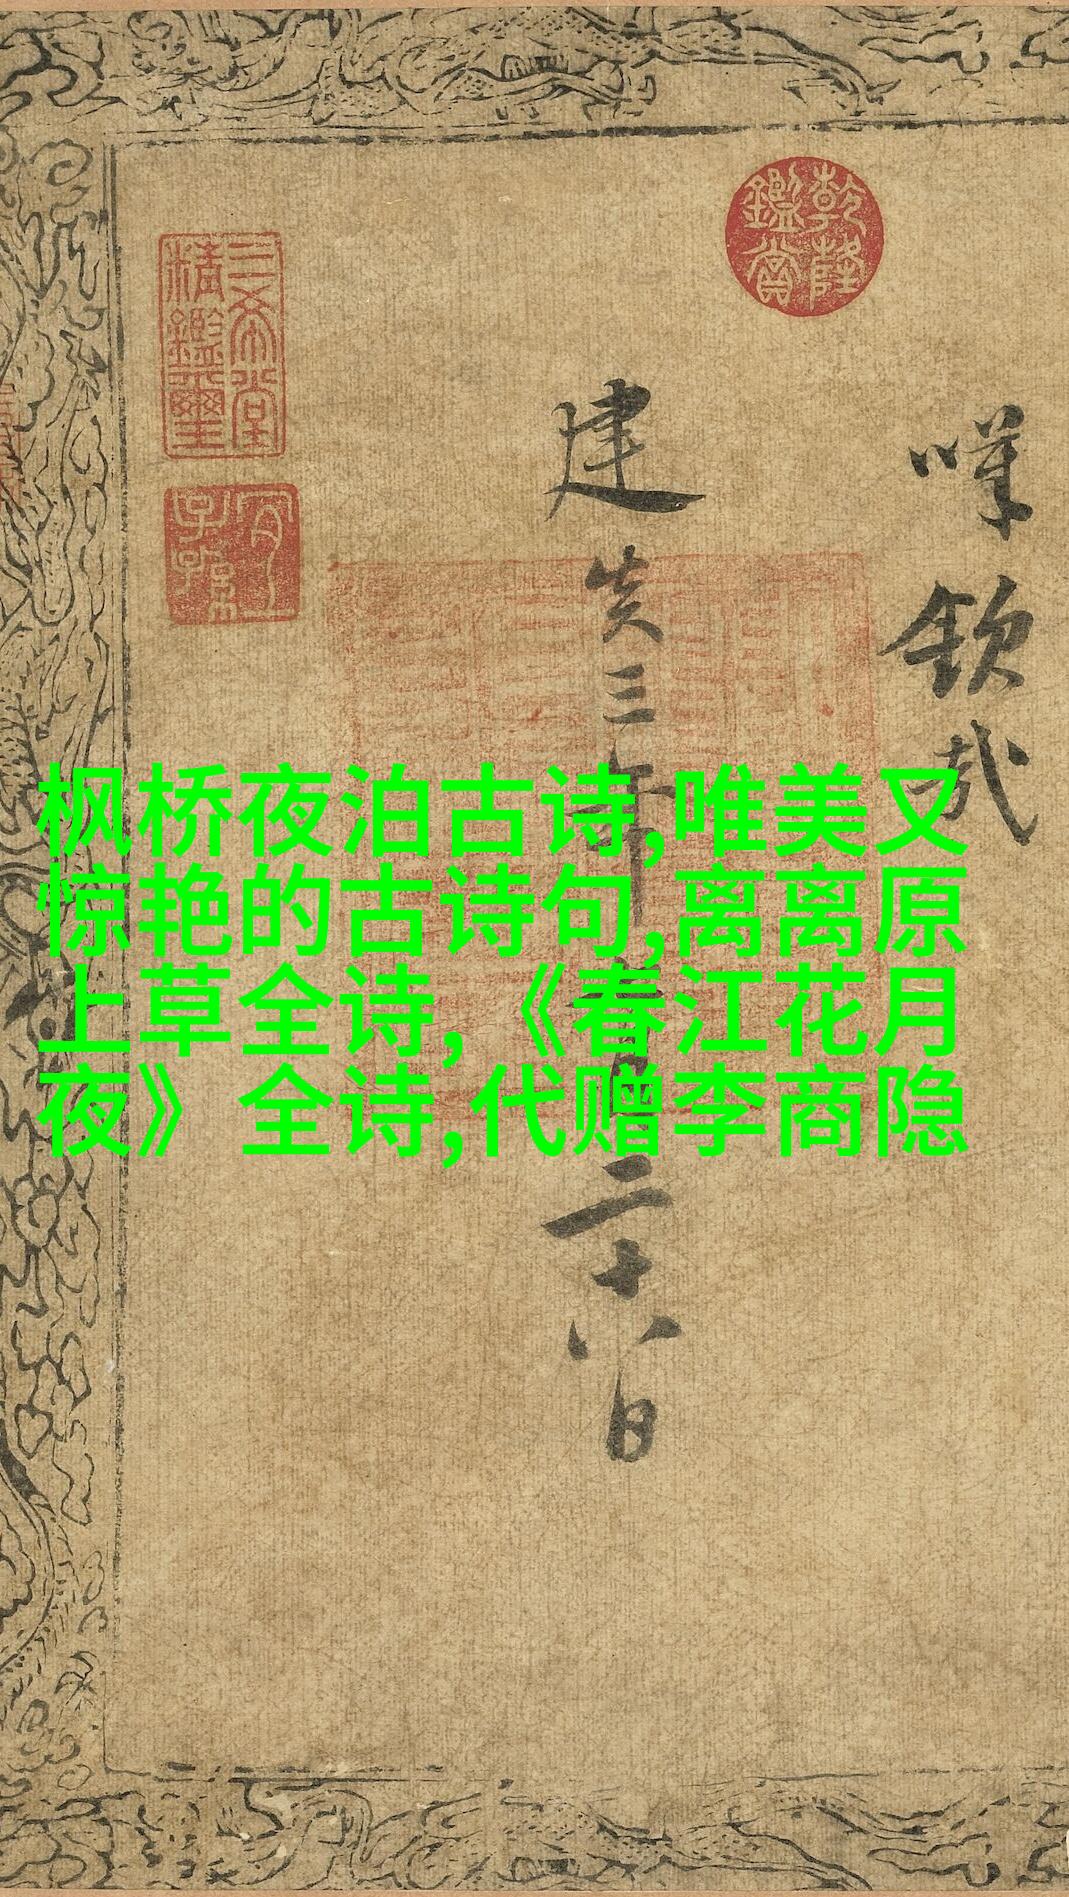 乾隆鑑賞
三希堂
精鑑璽
宜子孫
欽哉
建炎三年
二十八日
枫桥夜泊古诗,唯美又
惊艳的古诗句,离离原
上草全诗,《春江花月
夜》全诗,代赠李商隐